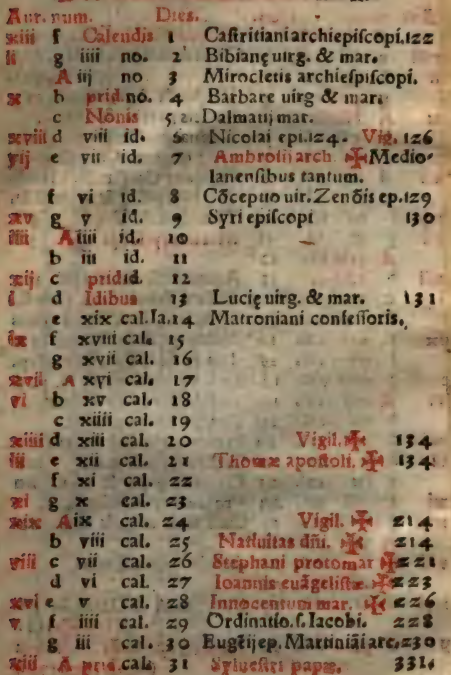 Aur. num. Dies.
xiii f Calendis 1 Castritiani archiepiscopi. 122
ii g iiii no. 2 Bibianę uirg. & mar.
A iij no 3 Mirocletis archiespiscopi.
x b prid. no. 4 Barbare uirg & mar.
c Nonis 5 Dalmatij mar.
xviii d viii id. 6 Nicolai epi. 124. Vig. 126
vij e vii id. 7 Ambrosii arch. ✠ Medio-
lanensibus tantum.
f vi id. 8 Cōceptio uir. Zenōis ep. 129
xv g v id. 9 Syri episcopi 130
iiii A iiii id. 10
b iii id. 11
xij c prid id. 12
i d Idibus 13 Lucię uirg. & mar. 131
e xix cal. Ia. 14 Matroniani confessoris.
ix f xviii cal. 15
g xvii cal. 16
xvii A xvi cal. 17
vi b xv cal. 18
c xiiii cal. 19
xiiii d xiii cal. 20 Vigil. ✠ 134
iii e xii cal. 21 Thomæ apostoli. ✠ 134
f xi cal. 22
xi g x cal. 23
xix A ix cal. 24 Vigil. ✠ 214
b viii cal. 25 Natiuitas dñi. ✠ 214
viii c vii cal. 26 Stephani protomar ✠ 221
d vi cal. 27 Ioannis euāgelistæ. ✠ 223
xvi e v cal. 28 Innocentum mar. ✠ 226
v f iiii cal. 29 Ordinatio. s. Iacobi. 228
g iii cal. 30 Eugēij ep. Martiniāi arc. 230
xiii A prid. cal. 31 Syluestri papæ. 331.